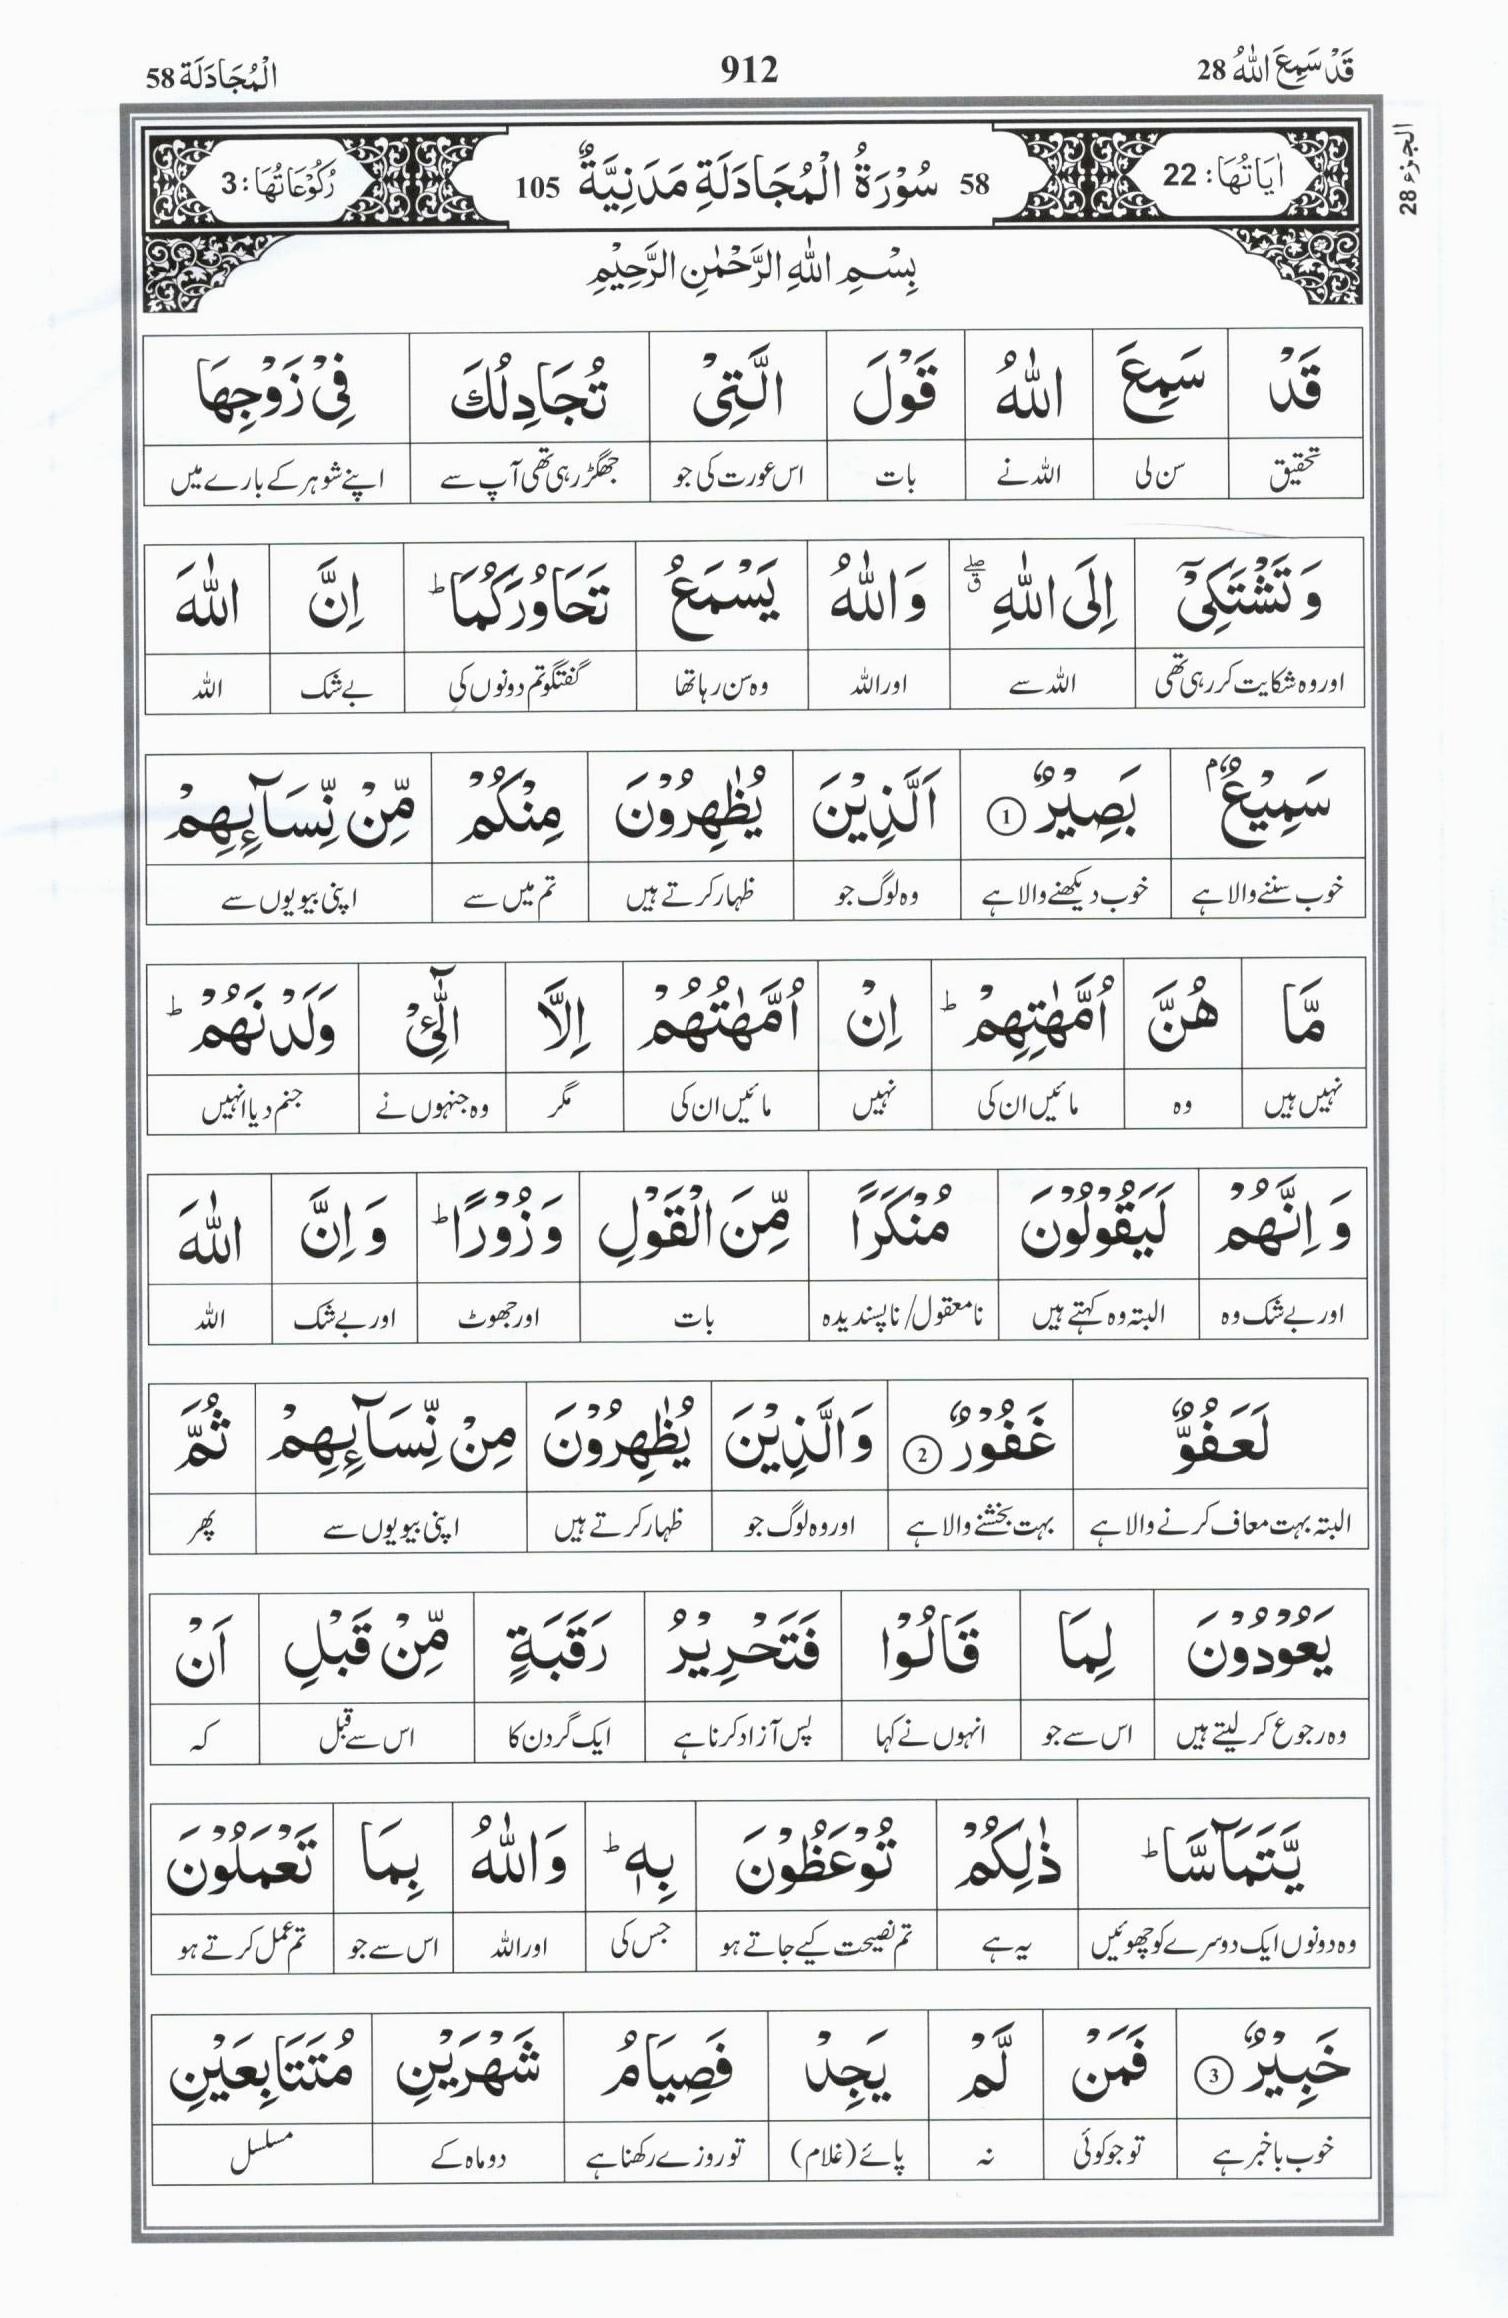 قَدْ سَمِعَ اللّٰهُ 28 912 الْمُجَادَلَة 58
الجزء 28
اٰيَاتُهَا: 22 58 سُوْرَةُ الْمُجَادَلَةِ مَدَنِيَّةٌ 105 رُكُوْعَاتُهَا: 3
بِسْمِ اللّٰهِ الرَّحْمٰنِ الرَّحِيْمِ
قَدْ سَمِعَ اللّٰهُ قَوْلَ الَّتِىْ تُجَادِلُكَ فِىْ زَوْجِهَا
تحقیق سن لی اللہ نے بات اس عورت کی جو جھگڑ رہی تھی آپ سے اپنے شوہر کے بارے میں
وَتَشْتَكِىْٓ اِلَى اللّٰهِ ۖق وَاللّٰهُ يَسْمَعُ تَحَاوُرَكُمَا ؕ اِنَّ اللّٰهَ
اور وہ شکایت کر رہی تھی اللہ سے اور اللہ وہ سن رہا تھا گفتگو تم دونوں کی بے شک اللہ
سَمِيْعٌۢ بَصِيْرٌ ① اَلَّذِيْنَ يُظٰهِرُوْنَ مِنْكُمْ مِّنْ نِّسَآىِٕهِمْ
خوب سننے والا ہے خوب دیکھنے والا ہے وہ لوگ جو ظہار کرتے ہیں تم میں سے اپنی بیویوں سے
مَّا هُنَّ اُمَّهٰتِهِمْ ؕ اِنْ اُمَّهٰتُهُمْ اِلَّا الّٰٓـِٔىْ وَلَدْنَهُمْ ؕ
نہیں ہیں وہ مائیں ان کی نہیں مائیں ان کی مگر وہ جنہوں نے جنم دیا انہیں
وَ اِنَّهُمْ لَيَقُوْلُوْنَ مُنْكَرًا مِّنَ الْقَوْلِ وَ زُوْرًا ؕ وَ اِنَّ اللّٰهَ
اور بے شک وہ البتہ وہ کہتے ہیں نامعقول/ ناپسندیدہ بات اور جھوٹ اور بے شک اللہ
لَعَفُوٌّ غَفُوْرٌ ② وَالَّذِيْنَ يُظٰهِرُوْنَ مِنْ نِّسَآىِٕهِمْ ثُمَّ
البتہ بہت معاف کرنے والا ہے بہت بخشنے والا ہے اور وہ لوگ جو ظہار کرتے ہیں اپنی بیویوں سے پھر
يَعُوْدُوْنَ لِمَا قَالُوْا فَتَحْرِيْرُ رَقَبَةٍ مِّنْ قَبْلِ اَنْ
وہ رجوع کر لیتے ہیں اس سے جو انہوں نے کہا پس آزاد کرنا ہے ایک گردن کا اس سے قبل کہ
يَّتَمَآسَّا ؕ ذٰلِكُمْ تُوْعَظُوْنَ بِهٖ ؕ وَاللّٰهُ بِمَا تَعْمَلُوْنَ
وہ دونوں ایک دوسرے کو چھوئیں یہ ہے تم نصیحت کیے جاتے ہو جس کی اور اللہ اس سے جو تم عمل کرتے ہو
خَبِيْرٌ ③ فَمَنْ لَّمْ يَجِدْ فَصِيَامُ شَهْرَيْنِ مُتَتَابِعَيْنِ
خوب باخبر ہے تو جو کوئی نہ پائے (غلام) تو روزے رکھنا ہے دو ماہ کے مسلسل